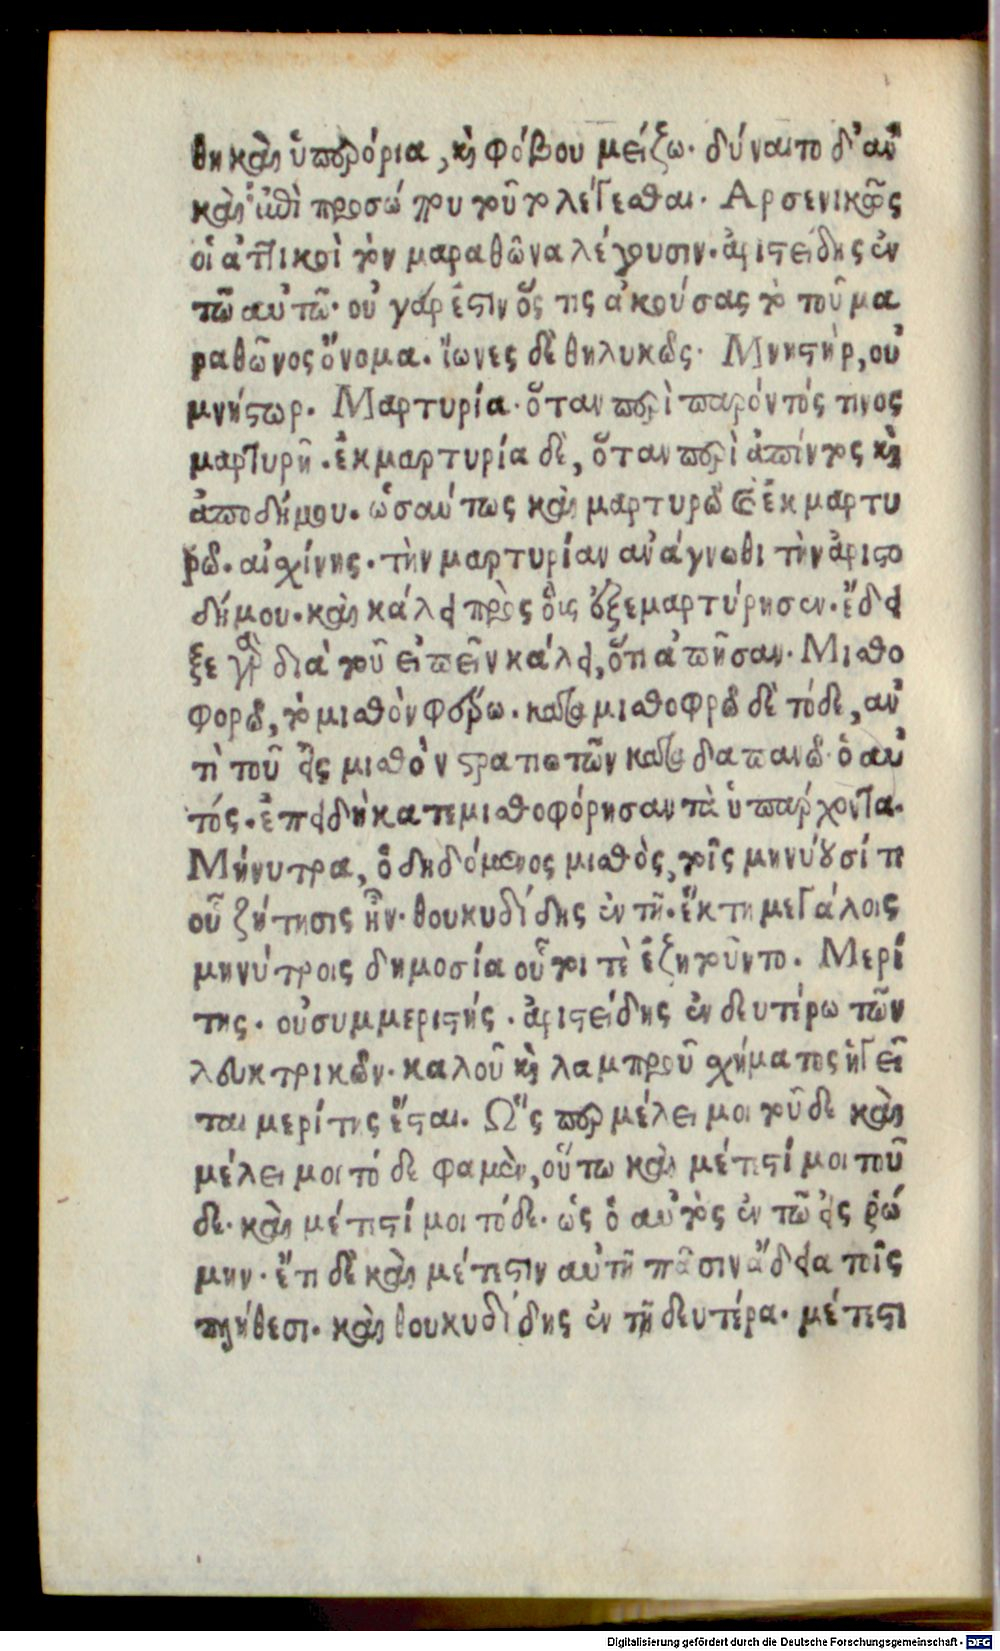 θη καὶ ὑπερόρια, καὶ φόβου μείζω. δύναιτο δ' ἂν
καὶ ἐπὶ προσώπου τοῦτο λέγεσθαι. Αρσενικῶς
οἱ ἀττικοὶ τὸν μαραθῶνα λέγουσιν. ἀριστείδης ἐν
τῶ αὐτῶ. οὐ γάρ ἐστιν ὅς τις ἀκούσας τὸ τοῦ μα
ραθῶνος ὄνομα. ἴωνες δὲ θηλυκῶς. Μνηστὴρ, οὐ
μνήστωρ. Μαρτυρία. ὅταν περὶ παρόντός τινος
μαρτυρῆ. ἐκμαρτυρία δὲ, ὅταν περὶ ἀπόντος καὶ
ἀποδήμου. ὡσαύτως καὶ μαρτυρῶ καὶ ἐκμαρτυ
ρῶ. αἰσχίνης. τὴν μαρτυρίαν ἀνάγνωθι τὴν ἀριστο
δήμου. καὶ κάλει πρὸς οὓς ἐξεμαρτύρησεν. ἔδει
ξε γὰρ διὰ τοῦ εἰπεῖν κάλει, ὅτι ἀπῆσαν. Μισθο
φορῶ, τὸ μισθὸν φέρω. καταμισθοφορῶ δὲ τόδε, ἀν
τὶ τοῦ εἰς μισθὸν στρατιωτῶν καταδαπανῶ. ὁ αὐ
τός. ἐπειδὴ κατεμισθοφόρησαν τὰ ὑπάρχοντα.
Μήνυτρα, ὁ διδόμενος μισθὸς, τοῖς μηνύουσί τι
οὗ ζήτησις ἦν. θουκυδίδης ἐν τῆ. ἕκτη μεγάλοις
μηνύτροις δημοσία οὗτοι τὲ ἐζητοῦντο. Μερί
της. οὐ συμμεριστής. ἀριστείδης ἐν δευτέρω τῶν
λευκτρικῶν. καλοῦ καὶ λαμπροῦ σχήματος ἡγεῖ
ται μερίτης ἔσται. Ὥς περ μέλει μοι τοῦδε καὶ
μέλει μοι τό δε φαμὲν, οὕτω καὶ μέτεστί μοι τοῦ
δε. καὶ μέτεστί μοι τόδε. ὡς ὁ αὐτὸς ἐν τῶ εἰς ῥώ
μην. ἔτι δὲ καὶ μέτεστιν αὐτῆ πᾶσιν ἄδεια τοῖς
πλήθεσι. καὶ θουκυδίδης ἐν τῆ δευτέρα. μέτεστι
Digitalisierung gefördert durch die Deutsche Forschungsgemeinschaft - DFG